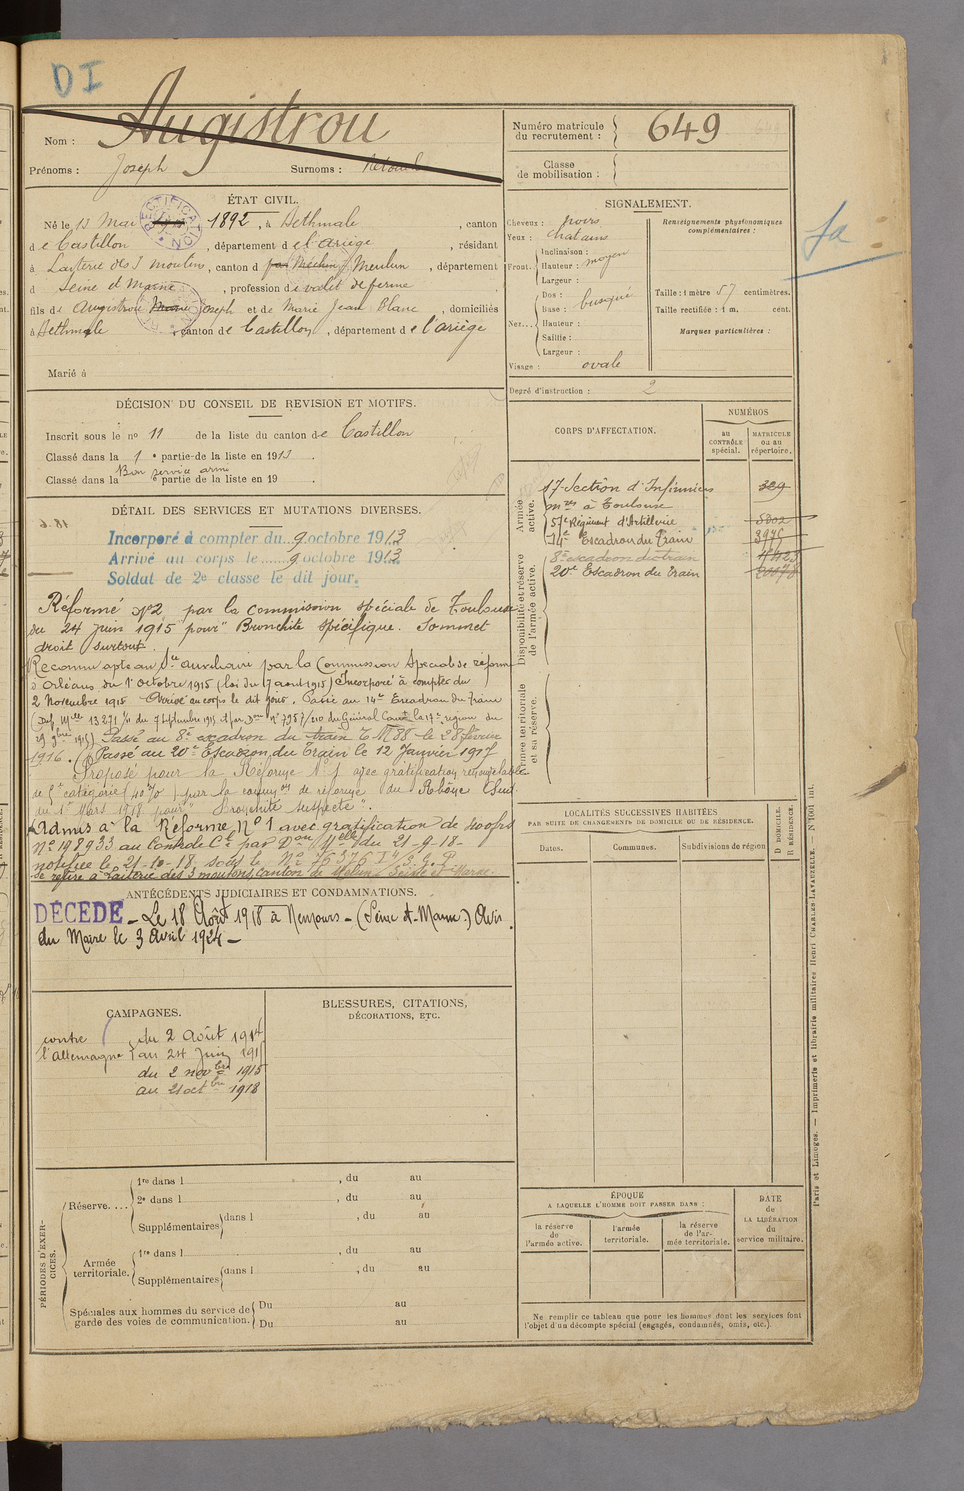 DI
Nom : Augistrou
Prénoms : Joseph Surnoms :
Numéro matricule du recrutement : 649
Classe de mobilisation :
ÉTAT CIVIL.
Né le 13 Mai 1892, à Sethmale, canton
de Castillon, département de l'Ariège, résidant
à Laiterie des 3 moulins, canton d Meulun, département
d Seine et Marne, profession de valet de ferme
fils de Augistrou Joseph et de Marie Jean Blanc, domiciliés
à Sethmale, canton de Castillon, département de l'ariège
Marié à
SIGNALEMENT.
Cheveux : noirs
Yeux : chatains
Front. Inclinaison :
Hauteur : moyen
Largeur :
Nez... Dos : busqué
Base :
Hauteur :
Saillie :
Largeur :
Visage : ovale
Renseignements physionomiques complémentaires :
Taille : 1 mètre 57 centimètres.
Taille rectifiée : 1 m. cent.
Marques particulières :
Degré d'instruction : 2
DÉCISION DU CONSEIL DE REVISION ET MOTIFS.
Inscrit sous le no 11 de la liste du canton de Castillon
Classé dans la 1e partie de la liste en 1913.
Bon service armé
Classé dans la e partie de la liste en 19 .
DÉTAIL DES SERVICES ET MUTATIONS DIVERSES.
Incorporé à compter du 9 octobre 1913
Arrivé au corps le 9 octobre 1913
Soldat de 2e classe le dit jour.
Réformé No2 par la commission spéciale de Toulouse
du 24 juin 1915 pour "Bronchite spécifique. Sommet
droit surtout.
Reconnu apte au Sce auxiliaire par la Commission Speciale de réforme
à Orléans du 1 octobre 1915 (loi du 17 aout 1915) Incorporé à compter du
2 Novembre 1915 Arrivé au corps le dit jour. Passé au 14e Escadron du Train
(Dep. Mlle 13271 1/11 du 7 Septembre 1915 et par Don No 7957/210 du Général Comdt la 17e région du
29 9bre 1915) Passé au 8e escadron du train E.M 88 le 28 février
1916. (Passé au 20e Escadron du Train le 12 Janvier 1917
Proposé pour la Réforme No 1 avec gratification renouvelable
de 6e catégorie (40%) par la common de réforme du Rhône (Sud)
du 1er Mars 1918 pour "Bronchite suspecte".
Admis à la Réforme No 1 avec gratification de 400frs
No 198933 au Controle Cl par Don Mlle du 21-9-18-
notifiée le 21-10-18, sous le No 76376 I/5.G.P.
Se retire à Laiterie des 3 moulins, canton de Melun Seine et Marne.
CORPS D'AFFECTATION.
NUMÉROS
au contrôle spécial.
MATRICULE ou au répertoire.
Armée active.
17e Section d'Infirmiers 329
mres à Toulouse
57e Régiment d'Artillerie
14e Escadron du Train 3975
Disponibilité et réserve de l'armée active.
8e escadron du train
20e Escadron du Train
Armée territoriale et sa réserve.
ANTÉCÉDENTS JUDICIAIRES ET CONDAMNATIONS.
DÉCÉDÉ - Le 18 Août 1918 à Nemours - (Seine et Marne) Avis
du Maire le 3 Avril 1924 -
LOCALITÉS SUCCESSIVES HABITÉES
PAR SUITE DE CHANGEMENTS DE DOMICILE OU DE RÉSIDENCE.
Dates. Communes. Subdivisions de région
D DOMICILE. R RÉSIDENCE.
CAMPAGNES.
contre l'allemagne
du 2 Août 1914
au 24 Juin 1915
du 2 novbre 1915
au 21 octbre 1918
BLESSURES, CITATIONS, DÉCORATIONS, ETC.
PÉRIODES D'EXERCICES.
Réserve....
1re dans l , du au
2e dans l , du au
Supplémentaires dans l , du au
Armée territoriale.
1re dans l , du au
Supplémentaires dans l , du au
Spéciales aux hommes du service de garde des voies de communication.
Du au
Du au
ÉPOQUE
A LAQUELLE L'HOMME DOIT PASSER DANS :
la réserve de l'armée active.
l'armée territoriale.
la réserve de l'armée territoriale.
DATE de LA LIBÉRATION du service militaire.
Ne remplir ce tableau que pour les hommes dont les services font
l'objet d'un décompte spécial (engagés, condamnés, omis, etc.).
Paris et Limoges. — Imprimerie et librairie militaires Henri CHARLES-LAVAUZELLE.